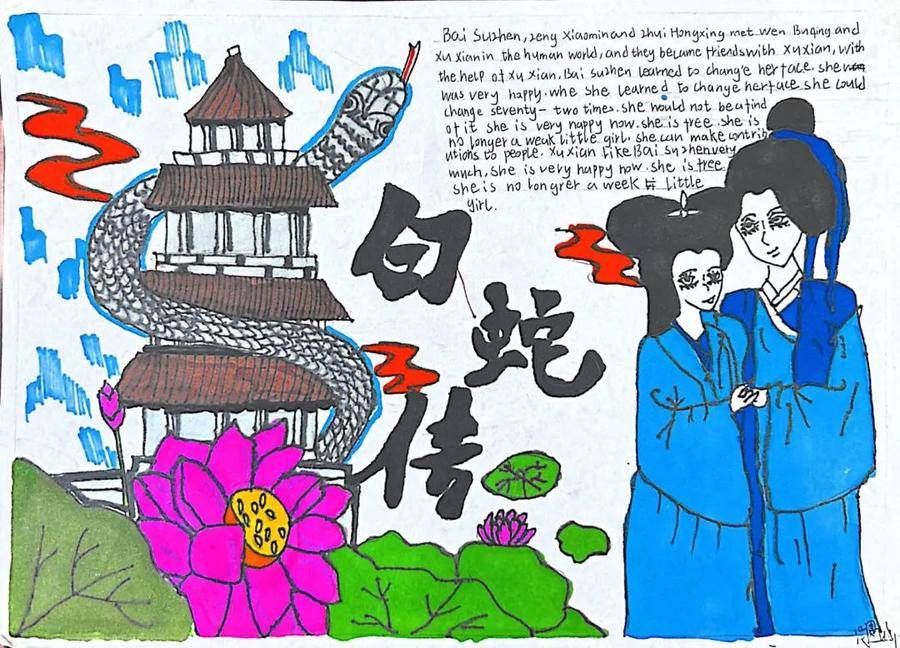 Bai Suzhen, zeng Xiaomin and zhui Hongxing met wen Buqing and
Xu Xian in the human world, and they became friends with Xu Xian, with
the help of Xu Xian, Bai suzhen learned to change her face. she
was very happy. whe she learned to change her face she could
change seventy-two times. she would not be afind
of it she is very happy now. she is free. she is
no longer a weak little girl. she can make contrib
utions to people. Xu Xian like Bai Suzhen very
much, she is very happy now. she is free.
she is no longrer a week little
girl.
白
蛇
传